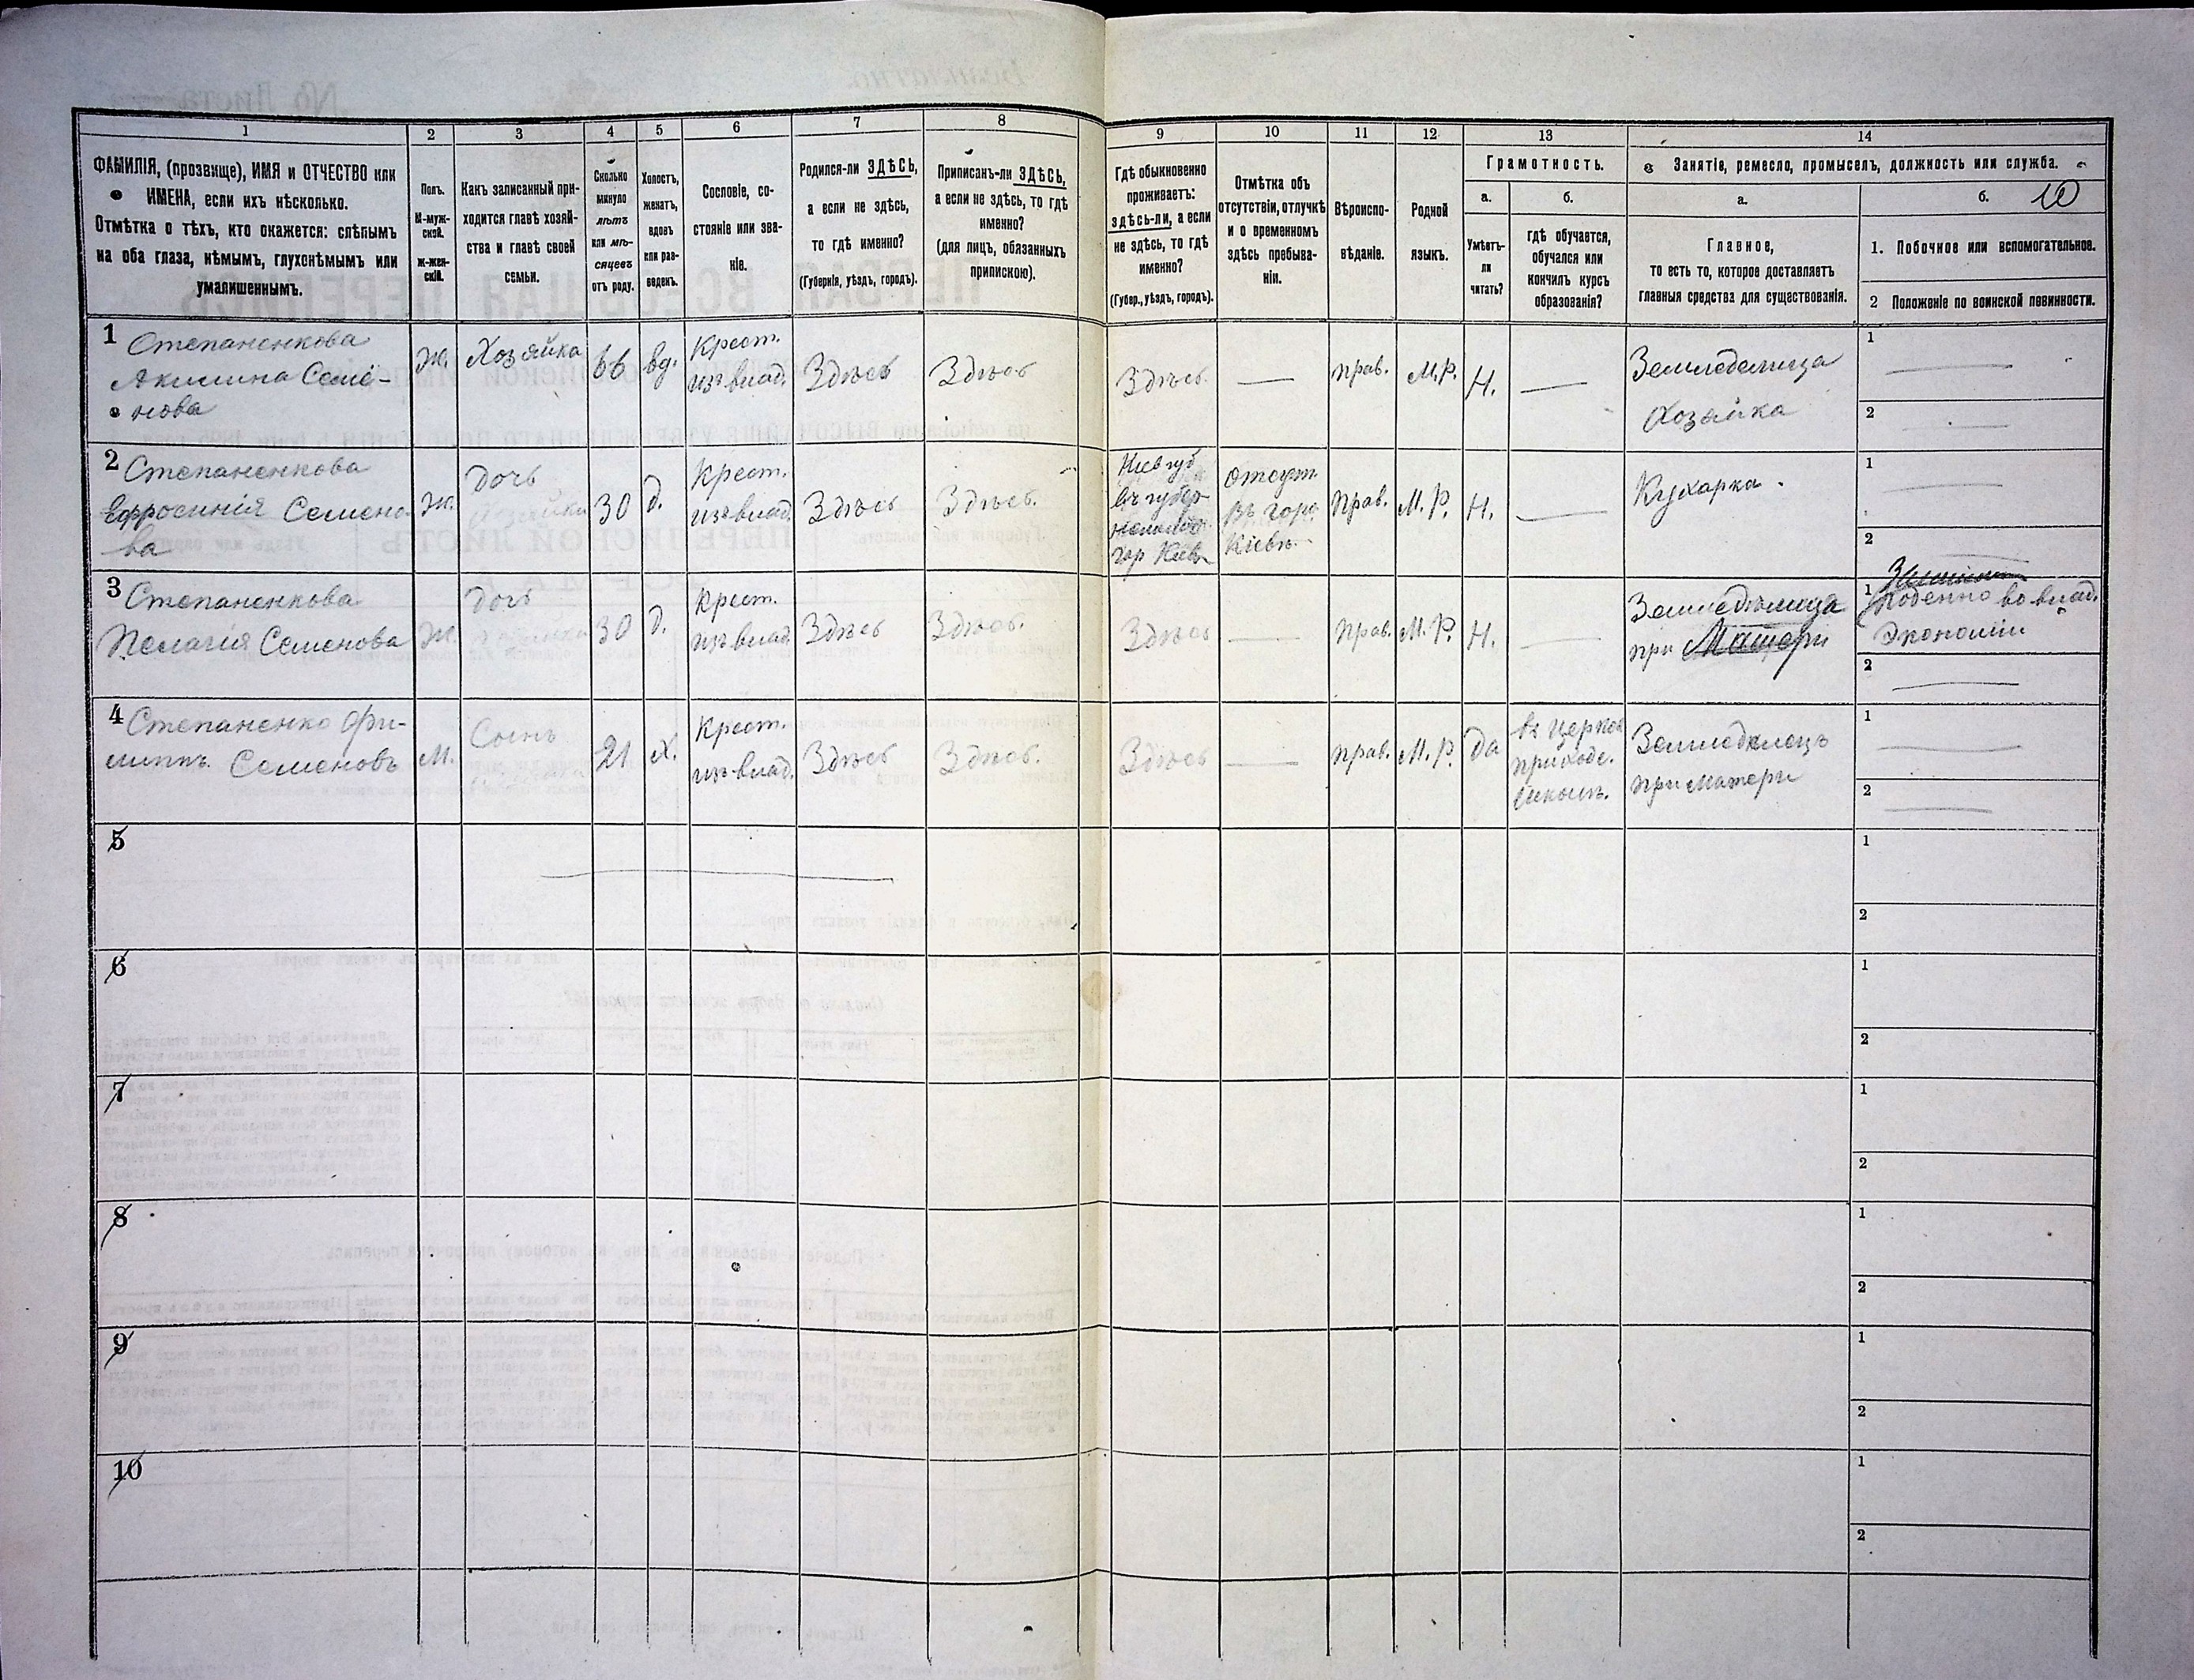 1 2 3 4 5 6 7 8 9 10 11 12 13 14
ФАМИЛІЯ, (прозвище), ИМЯ и ОТЧЕСТВО или
ИМЕНА, если ихъ нѣсколько.
Отмѣтка о тѣхъ, кто окажется: слѣпымъ
на оба глаза, нѣмымъ, глухонѣмымъ или
умалишеннымъ.
Полъ.
М-муж-
ской.
Ж-жен-
скій.
Какъ записанный при-
ходится главѣ хозяй-
ства и главѣ своей
семьи.
Сколько
минуло
лѣтъ
или мѣ-
сяцевъ
отъ роду.
Холостъ,
женатъ,
вдовъ
или раз-
веденъ.
Сословіе, со-
стояніе или зва-
ніе.
Родился-ли ЗДѢСЬ,
а если не здѣсь,
то гдѣ именно?
(Губернія, уѣздъ, городъ).
Приписанъ-ли ЗДѢСЬ,
а если не здѣсь, то гдѣ
именно?
(для лицъ, обязанныхъ
припискою).
Гдѣ обыкновенно
проживаетъ:
здѣсь-ли, а если
не здѣсь, то гдѣ
именно?
(Губер., уѣздъ, городъ).
Отмѣтка объ
отсутствіи, отлучкѣ
и о временномъ
здѣсь пребыва-
ніи.
Вѣроиспо-
вѣданіе.
Родной
языкъ.
Грамотность.
а.
Умѣетъ-
ли
читать?
б.
гдѣ обучается,
обучался или
кончилъ курсъ
образованія?
Занятіе, ремесло, промыселъ, должность или служба.
а.
Главное,
то есть то, которое доставляетъ
главныя средства для существованія.
б. 10
1. Побочное или вспомогательное.
2 Положеніе по воинской повинности.
1 Степаненкова
Акилина Семё-
нова
Ж.
Хозяйка
66
вд.
Крест.
изъ влад.
Здѣсь
Здѣсь
Здѣсь.
—
прав.
М.р.
Н.
—
Земледелица
Хозяйка
1 —
2 —
2 Степаненкова
Ефросинія Семено
ва
Ж.
дочь
30
д.
Крест.
изъ влад.
Здѣсь
Здѣсь.
Кіев губ
въ губер
гор Кіевѣ
Отсут.
въ горо.
Кіевѣ.
Прав.
М. Р.
Н.
—
Кухарка.
1 —
2 —
3 Степаненкова
Пелагія Семенова
Ж.
дочь
30
д.
Крест.
изъ влад.
Здѣсь
Здѣсь.
Здѣсь
—
Прав.
М. Р.
Н.
—
Земледѣлица
при Матери
1 во влад.
Экономіи
2 —
4 Степаненко Фи-
липпъ Семеновъ
М.
Сынъ
21
Х.
Крест.
изъ влад.
Здѣсь
Здѣсь.
Здѣсь
—
прав.
М. Р.
да
въ церков
приходс.
школѣ.
Земледѣлецъ
при матери
1 —
2 —
5
1
2
6
1
2
7
1
2
8
1
2
9
1
2
10
1
2